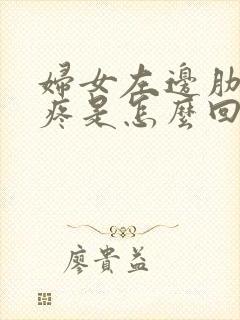 婦女左邊肋
疼是怎麼回
廖貴益